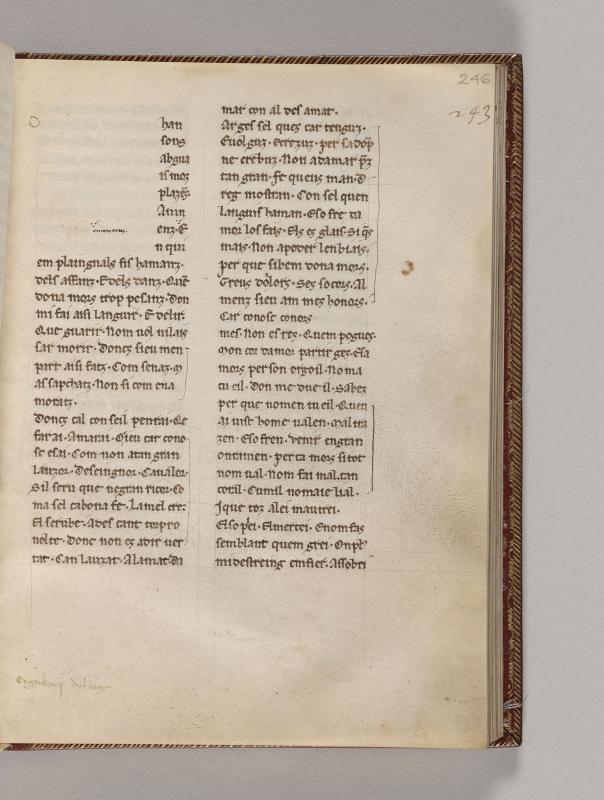 246
243
han
sons
abgua
is moz
plazẽ.
Auin
enz. E
n qui
em plaingnals fis hamanz.
dels affanz. E dels danz. Quẽ
dona mors trop pesanz. Don
mi fai aisi languir. E delir.
Que guarir. Nom uol nilais
sar morir. Doncs sieu men
part aisi fatz. Com senaz.
as sapchatz. Non si com ena
moratz.
Doncs cal conseil penrai. Qe
farai. Amarai. Qieu car cono
sc e sai. Com non atan gran
lauzor. De seingnor. Caualer.
Sil seru que negran ricor. Co
ma sel cabona fe. Lam el crez
El serube. Ades cant tuipro
uolte. Donc non es adir uer
tat. Can lauzat. A lamat. Da
mar con al des amat.
Arges sel ques car tenguz.
E uolguz. E crezuz. per sa dop
ne crebuz. Non adamar
tan gran. fe queus man. d
reg mostran. Con sel quen
languis haman. E so fre da
mor los fais. Els es glais. Si qes
mais. Non apoder len biais.
per que sibem dona mors.
Greus dolors. Ses socors. Al
menz sieu am mes honors.
Car conosc coners
mes. Non es res. Quem pogues.
Mon cor damor partir ges. Esa
mors per son orgoil. No ma
cu eil. don me due il. Sabez
per que nomen tu eil. Quen
ai uist home ualen. Mal tra
zen. E so fren. uenir en gran
onramen. per ca mors si tot
nom ual. Nom fai mal. tan
coral. Cumil nomaie lial.
J que toz alei maurei.
El so pei. El mercei. E nom fai
semblant quem grei. On pl9
mi destreing em fier. Assobri